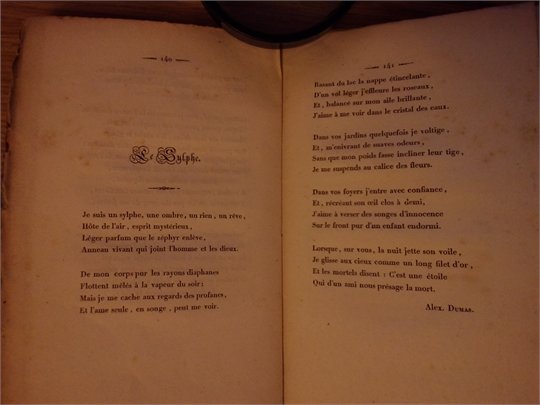 — 140 —
Le Sylphe.
Je suis un sylphe, une ombre, un rien, un rêve,
Hôte de l'air, esprit mystérieux,
Léger parfum que le zéphyr enlève,
Anneau vivant qui joint l'homme et les dieux.
De mon corps pur les rayons diaphanes
Flottent mêlés à la vapeur du soir;
Mais je me cache aux regards des profanes,
Et l'ame seule, en songe, peut me voir.
— 141 —
Rasant du lac la nappe étincelante,
D'un vol léger j'effleure les roseaux,
Et, balancé sur mon aile brillante,
J'aime à me voir dans le cristal des eaux.
Dans vos jardins quelquefois je voltige,
Et, m'enivrant de suaves odeurs,
Sans que mon poids fasse incliner leur tige,
Je me suspends au calice des fleurs.
Dans vos foyers j'entre avec confiance,
Et, récréant son œil clos à demi,
J'aime à verser des songes d'innocence
Sur le front pur d'un enfant endormi.
Lorsque, sur vous, la nuit jette son voile,
Je glisse aux cieux comme un long filet d'or,
Et les mortels disent : C'est une étoile
Qui d'un ami nous présage la mort.
Alex. Dumas.